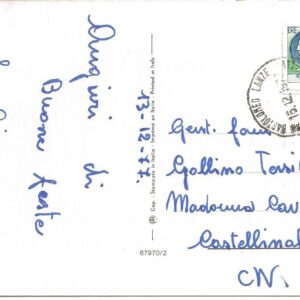 Auguri di
Buone feste
13-12-77.
Cop. - Stampato in Italia - Imprimé en Italie - Printed in Italy
67970/2
Gent. fam
Gallino
Madonna
Castellinal
CN.
LIRE
BARTOLOMEO LANZE
15.12